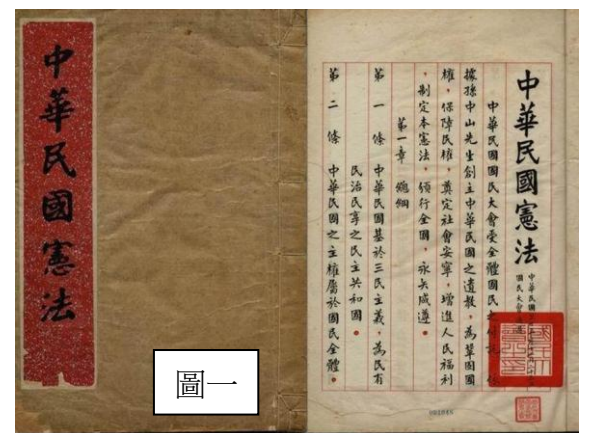 中華民國憲法
中華民國憲法
中華民國
國民大會
中華民國國民大會受全體國民之付託，依
據孫中山先生創立中華民國之遺教，為鞏固國
權，保障民權，奠定社會安寧，增進人民福利
，制定本憲法，頒行全國，永矢咸遵。
第一章 總綱
第一條 中華民國基於三民主義，為民有
民治民享之民主共和國。
第二條 中華民國之主權屬於國民全體。
圖一